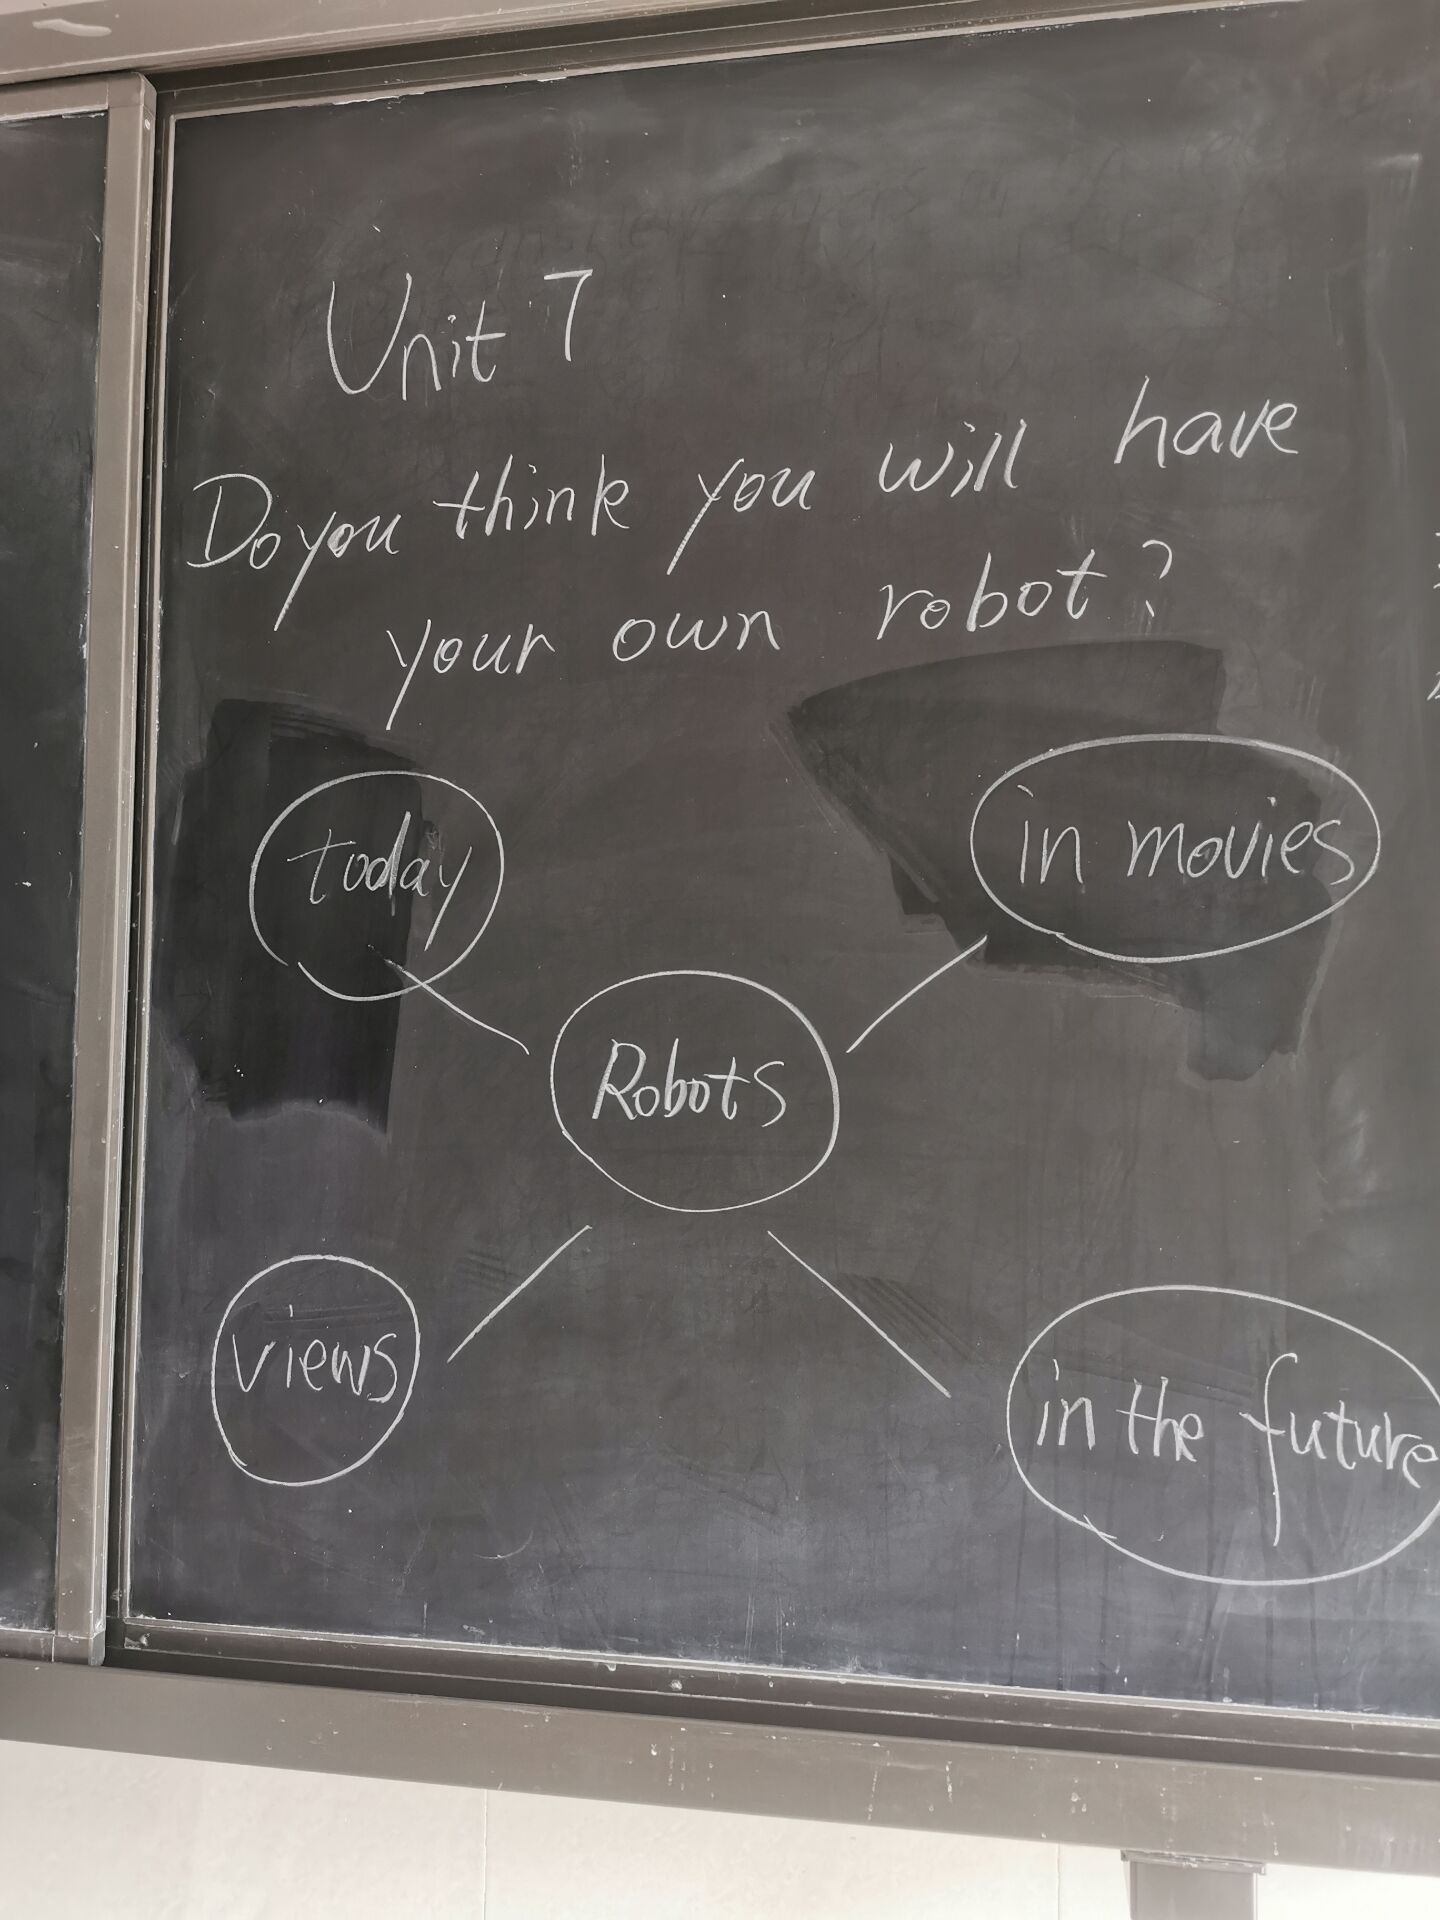 Unit 7
Do you think you will have
your own robot?
today
in movies
Robots
views
in the future